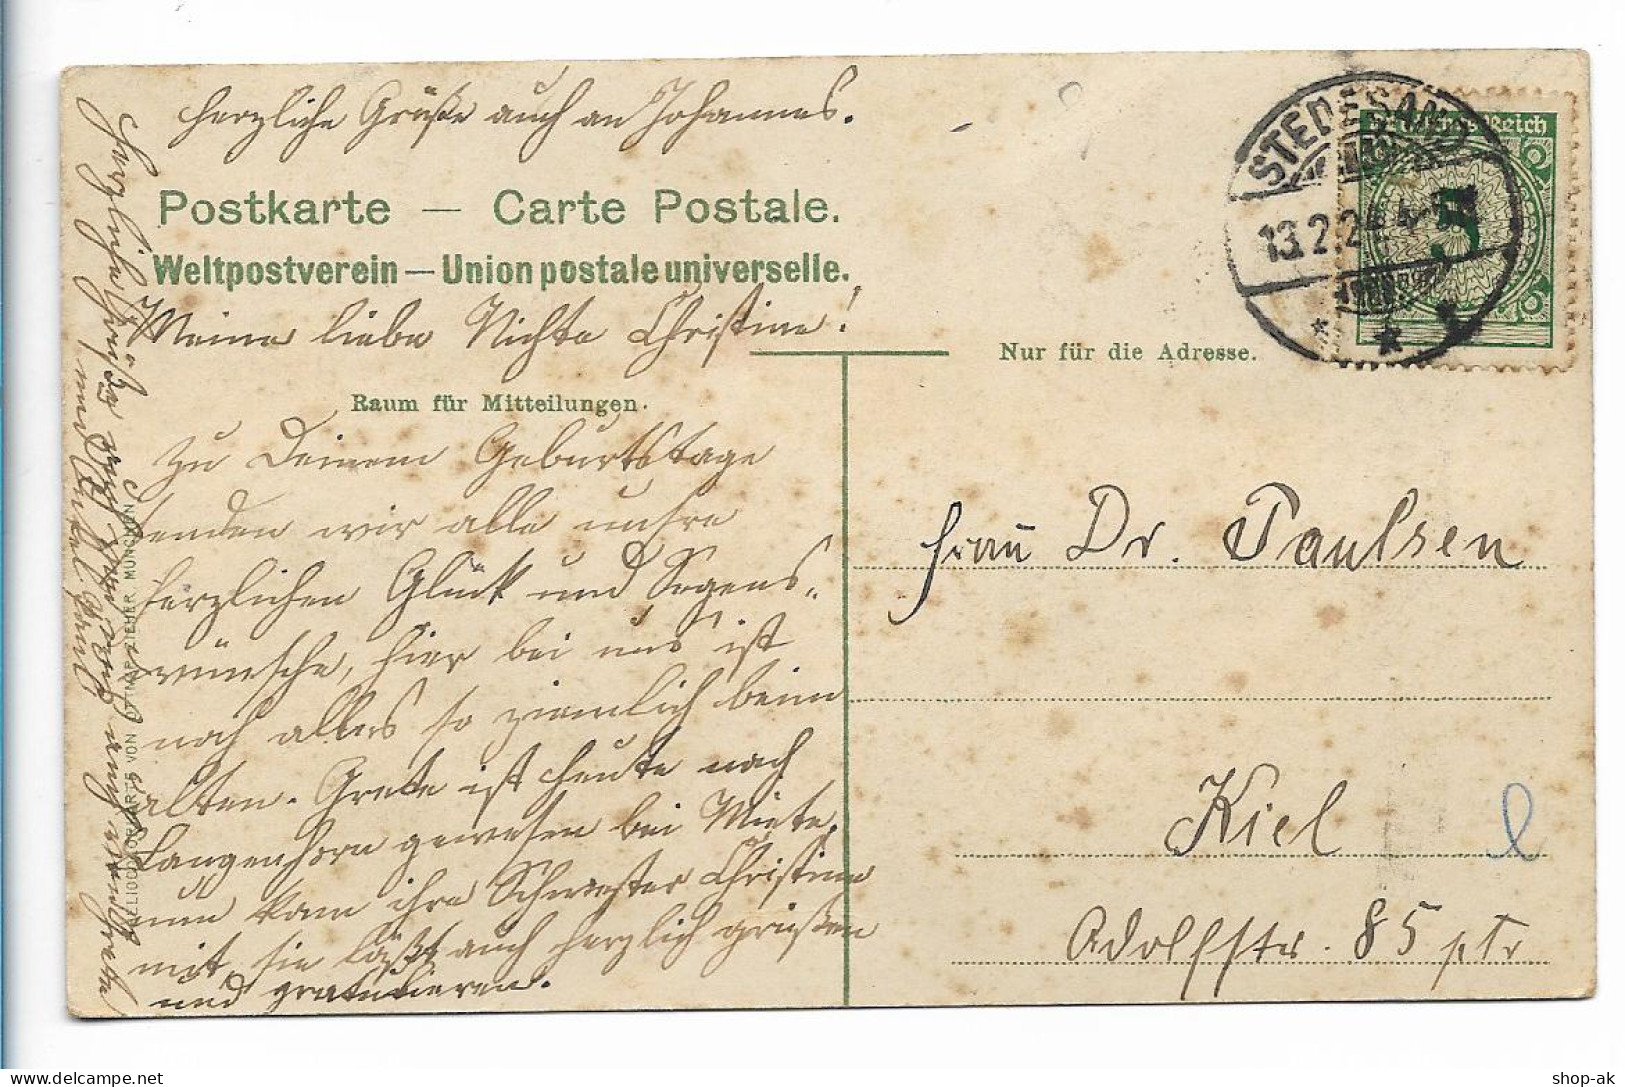 herzliche Grüße auch an Johannes.
Postkarte — Carte Postale.
Weltpostverein — Union postale universelle.
Meine liebe Nichte Christine!
Raum für Mitteilungen.
Zu Deinem Geburtstage
senden wir alle unsre
herzlichen Glück und Segens-
wünsche, hier bei uns ist
noch alles so ziemlich beim
alten. Grete ist heute nach
Langenhorn gewesen bei Mieta,
nun kam ihre Schwester Christine
mit, sie läßt auch herzlich grüßen
und gratulieren.
Herzliche Grüße auch von
und Onkel
VON OTTMAR ZIEHER MÜNCHEN
STEDESAND
13.2.24
Deutsches Reich
5
Nur für die Adresse.
Frau Dr. Paulsen
Kiel
Adolfstr. 85 ptr
shop-ak